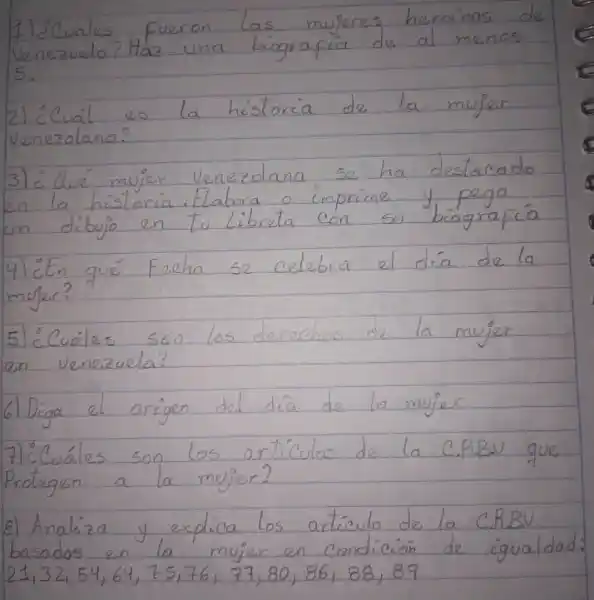 1) ¿Cuales fueron las mujeres heroinas de
Venezuela? Haz una biografía de al menos
5.
2) ¿Cuál es la historia de la mujer
Venezolana?
3) ¿Qué mujer Venezolana se ha destacado
en la historia. Elabora o imprime y pega
un dibujo en tu Libreta con su biografía
4) ¿En qué Fecha se celebra el día de la
mujer?
5) ¿Cuáles son los derechos de la mujer
en venezuela?
6) Diga el origen del día de la mujer
7) ¿Cuáles son los artículos de la C.R.B.V que
Protegen a la mujer?
8) Analiza y explica los artículo de la CRBV
basados en la mujer en Condición de igualdad:
21, 32, 54, 64, 75, 76, 77, 80, 86, 88, 89